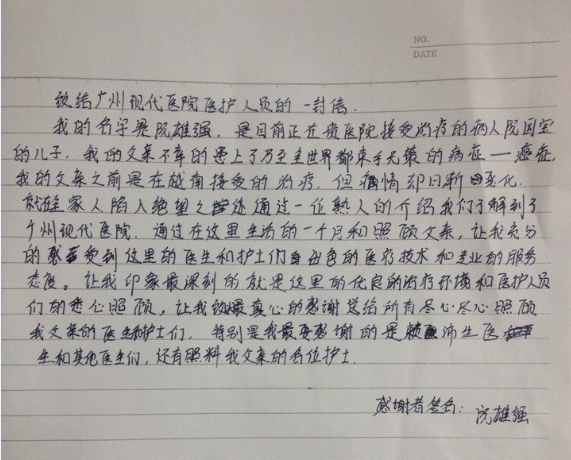 NO.
DATE
致给广州现代医院医护人员的一封信.
我的名字是阮雄强, 是目前正在贵医院接受治疗的病人阮国宝
的儿子. 我的父亲不幸的患上了乃至全世界都束手无策的病症——癌症,
我的父亲之前是在越南接受的治疗, 但病情却日渐恶化.
就在家人陷入绝望之 通过一位熟人的介绍我们了解到了
广州现代医院. 通过在这里生活的一个月和照顾父亲, 让我充分
的感受到这里的医生和护士们出色的医疗技术和专业的服务
态度。让我印象最深刻的就是这里的优良的治疗环境和医护人员
们的悉心照顾, 让我 最真心的感谢送给所有尽心尽心照顾
我父亲的医生和护士们. 特别是我最要感谢的是 沛生医
生和其他医生们, 还有照料我父亲的各位护士.
感谢者签名: 阮雄强